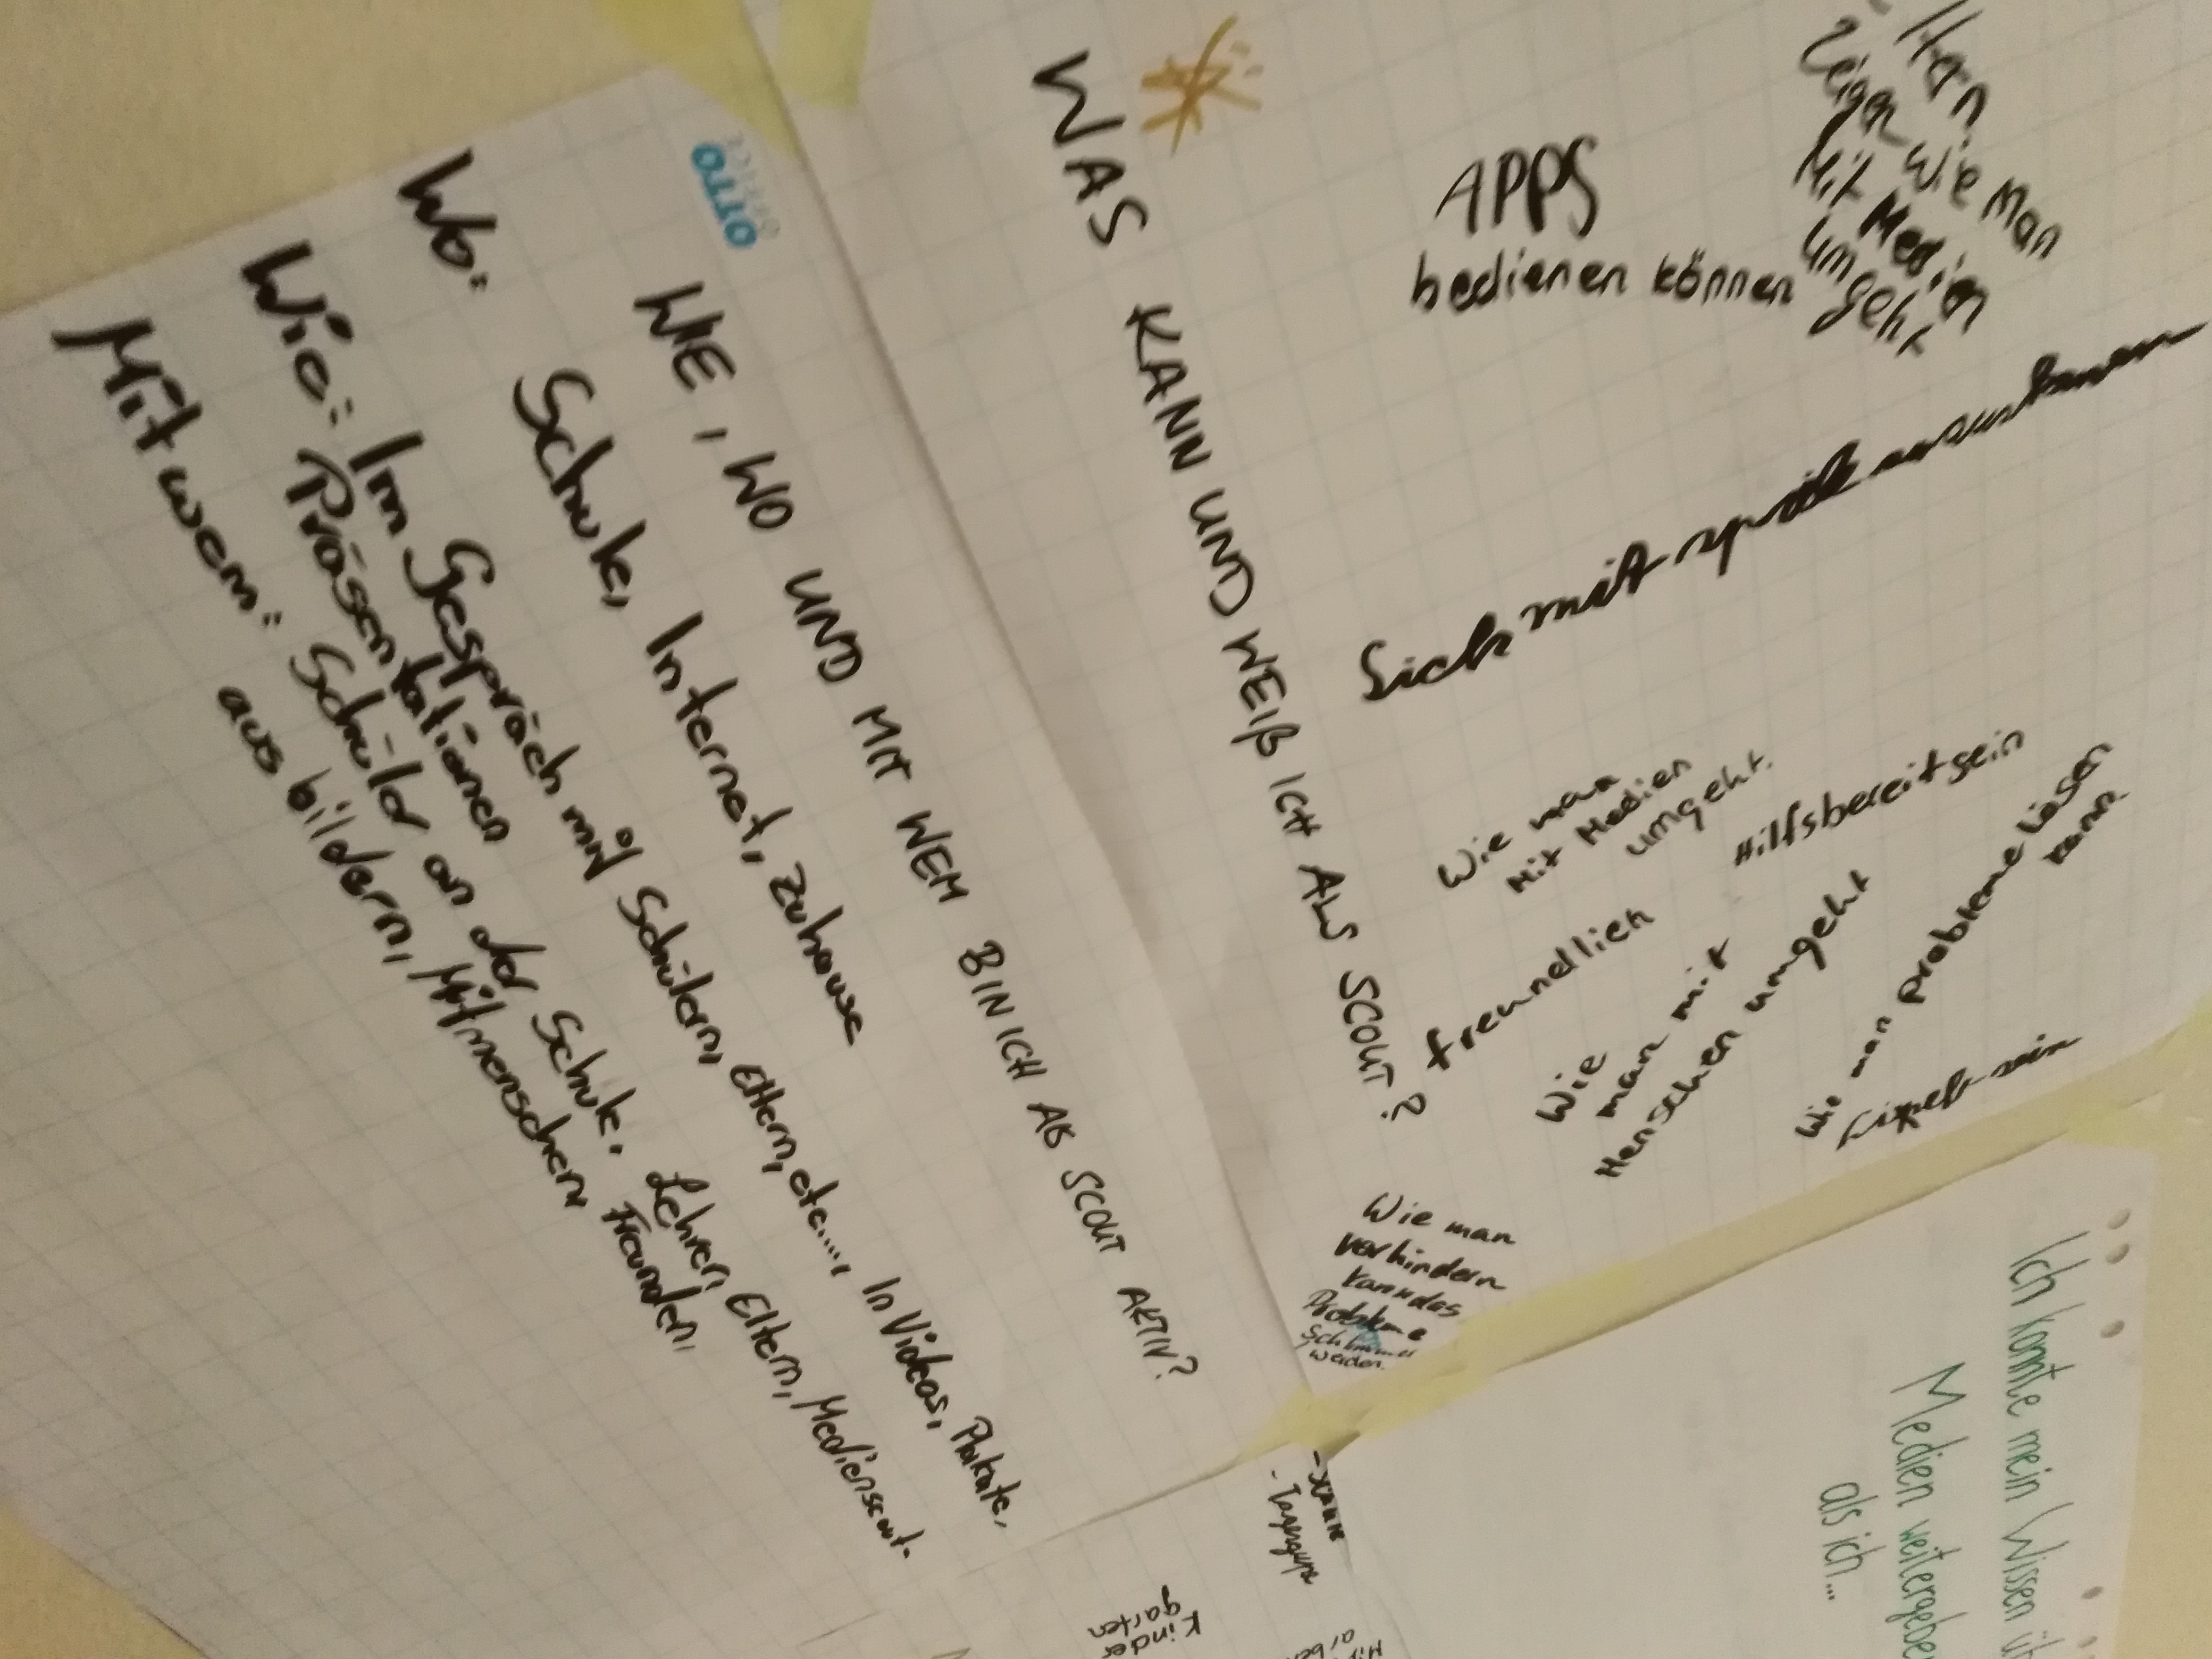 OTTO
WIE, WO UND MIT WEM BIN ICH ALS SCOUT AKTIV?
Wo: Schule, Internet, Zuhause
Wie: Im Gespräch mit Schülern, Eltern, etc...., In Videos, Plakate,
Präsentationen
Mit wem: Schüler an der Schule, Lehrer, Eltern, Medienscout-
ausbildern, Mitmenschen Freunden,
WAS KANN UND WEIß ICH ALS SCOUT?
APPS
bedienen können
Zeigen Wie Man
Mit Medien
umgeht
Sich mit
Wie man
Mit Medien
umgeht.
Hilfsbereit sein
freundlich
Wie
man mit
Menschen umgeht
Wie man probleme lösen
kann.
sein
Wie man
verhindern
kann das
Probleme
Schlimmer
werden.
Ich konnte mein Wissen
Medien
als ich...
Kinder
garten